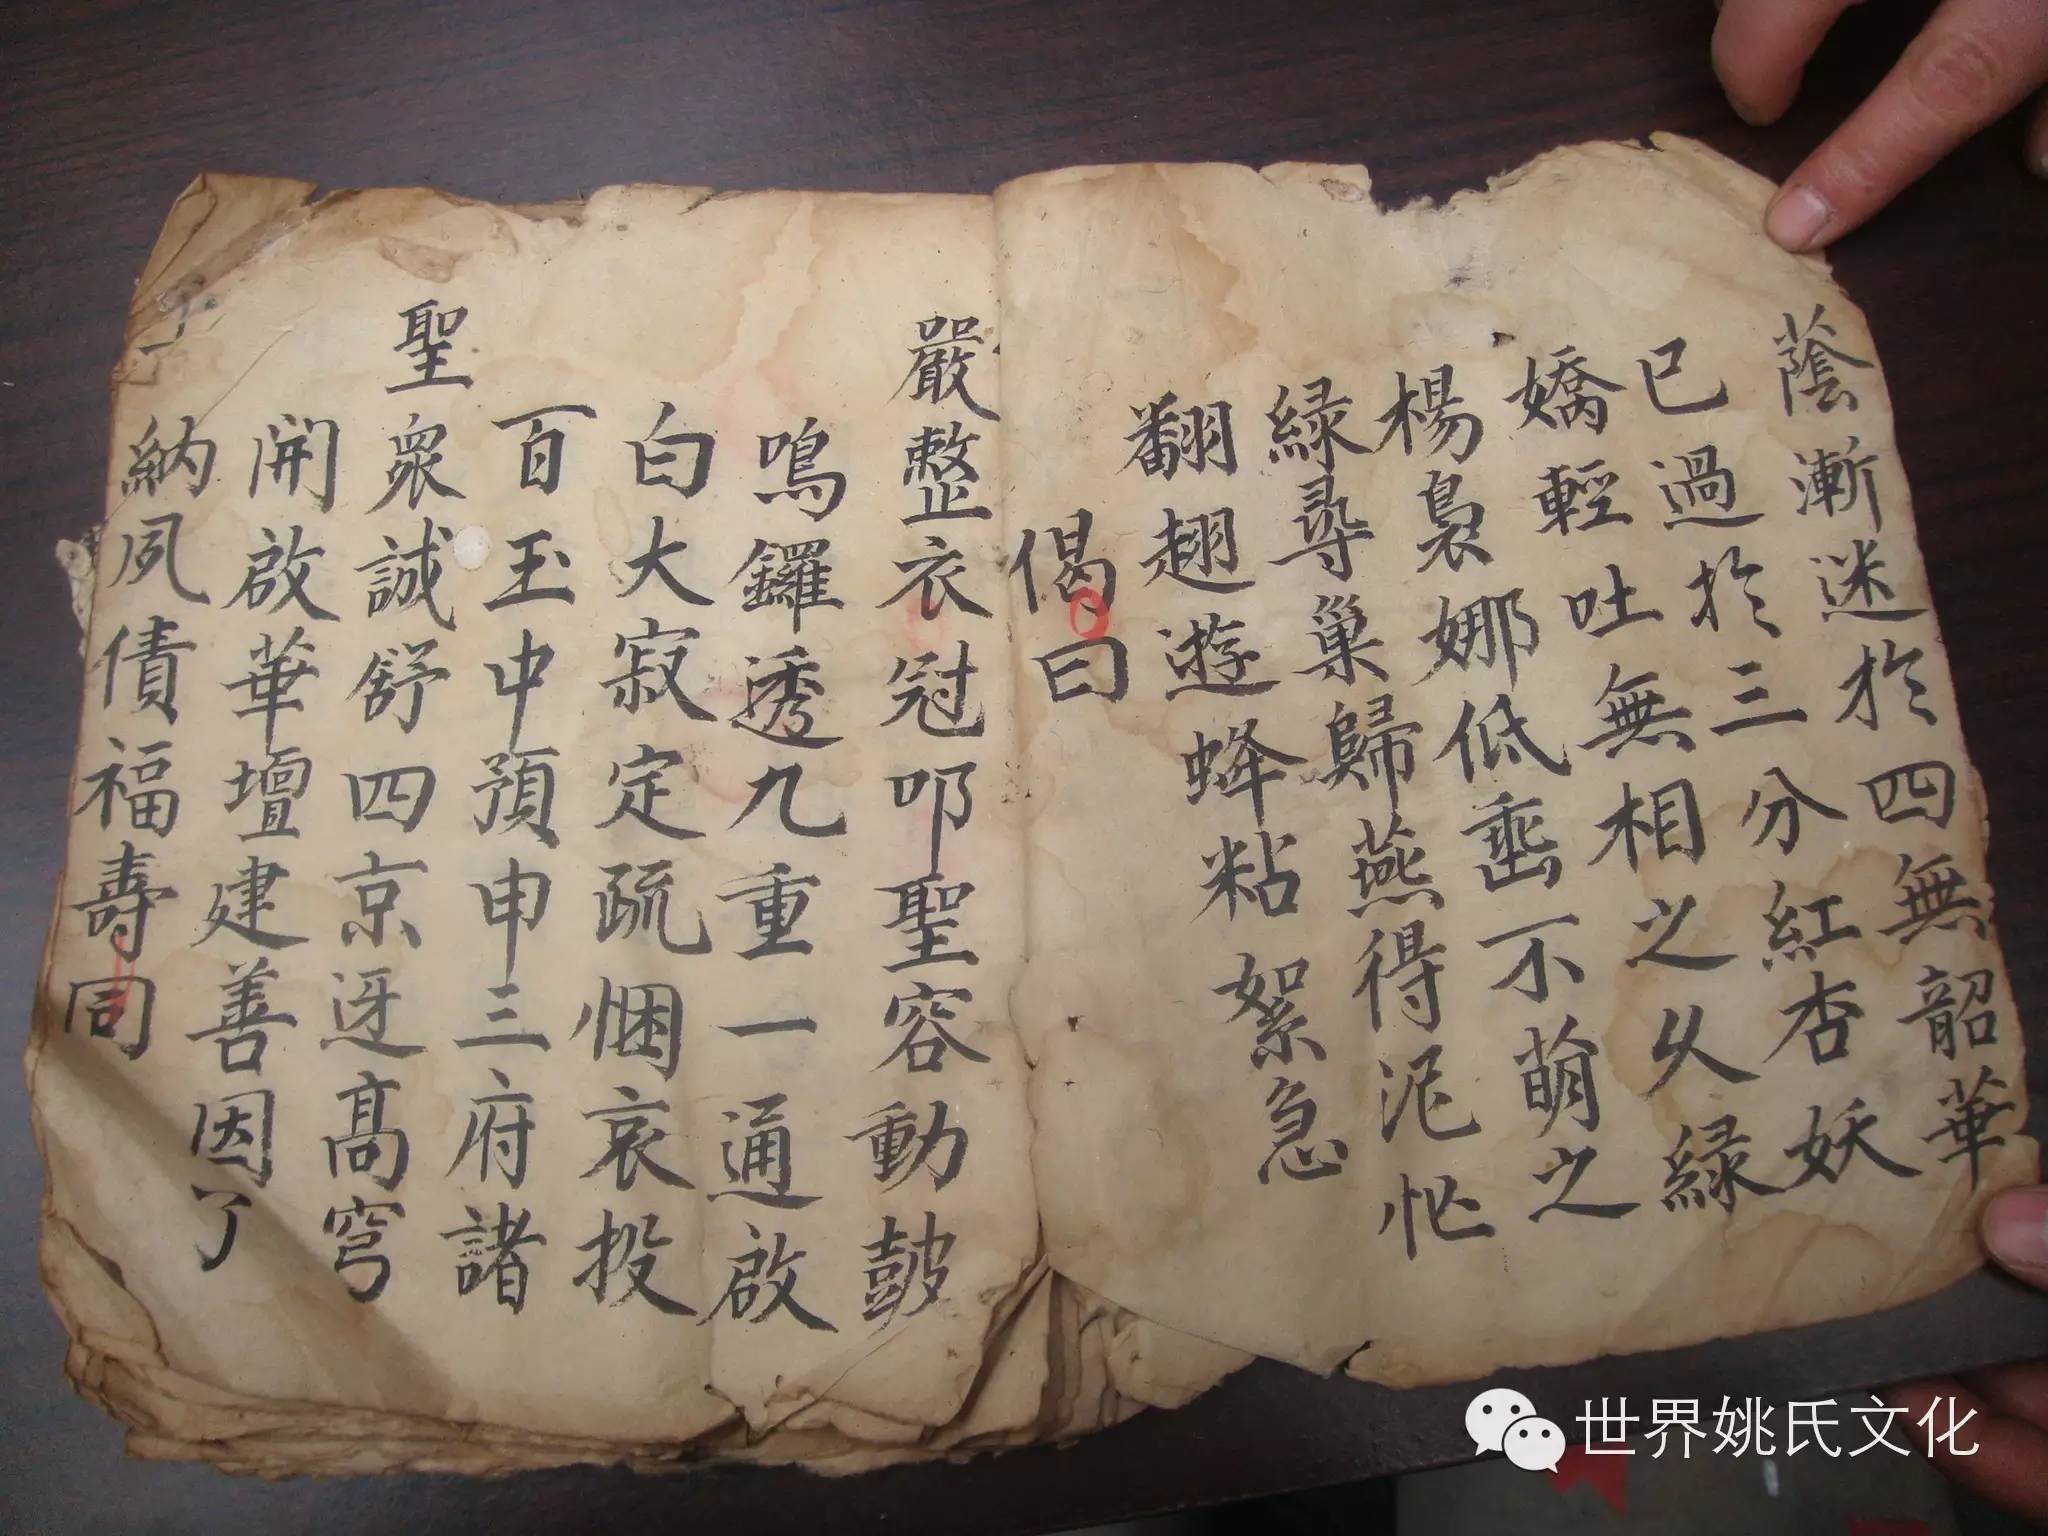 蔭漸迷於四無韶華
已過於三分紅杏妖
嬌輕吐無相之久緑
楊裊娜低垂不萌之
緑尋巢歸燕得泥忙
翻翅遊蜂粘絮急
偈曰
嚴整衣冠叩聖容動鼓
鳴鑼透九重一通啟
白大寂定疏悃哀投
百玉中預申三府諸
聖衆誠舒四京迓高穹
開啟華壇建善因了
納夙債福壽同
世界姚氏文化